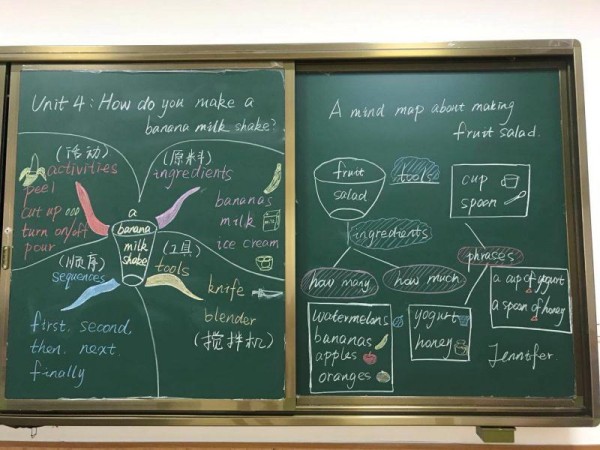 Unit 4: How do you make a
banana milk shake?
(活动)
activities
peel
cut up
turn on/off
pour
(原料)
ingredients
bananas
milk
ice cream
a
banana
milk
shake
(顺序)
sequences
first, second,
then, next,
finally
(工具)
tools
knife
blender
(搅拌机)
A mind map about making
fruit salad.
fruit
salad
tools
cup
spoon
ingredients
how many
how much
phrases
watermelons
bananas
apples
oranges
yogurt
honey
a cup of yogurt
a spoon of honey
Jennifer.